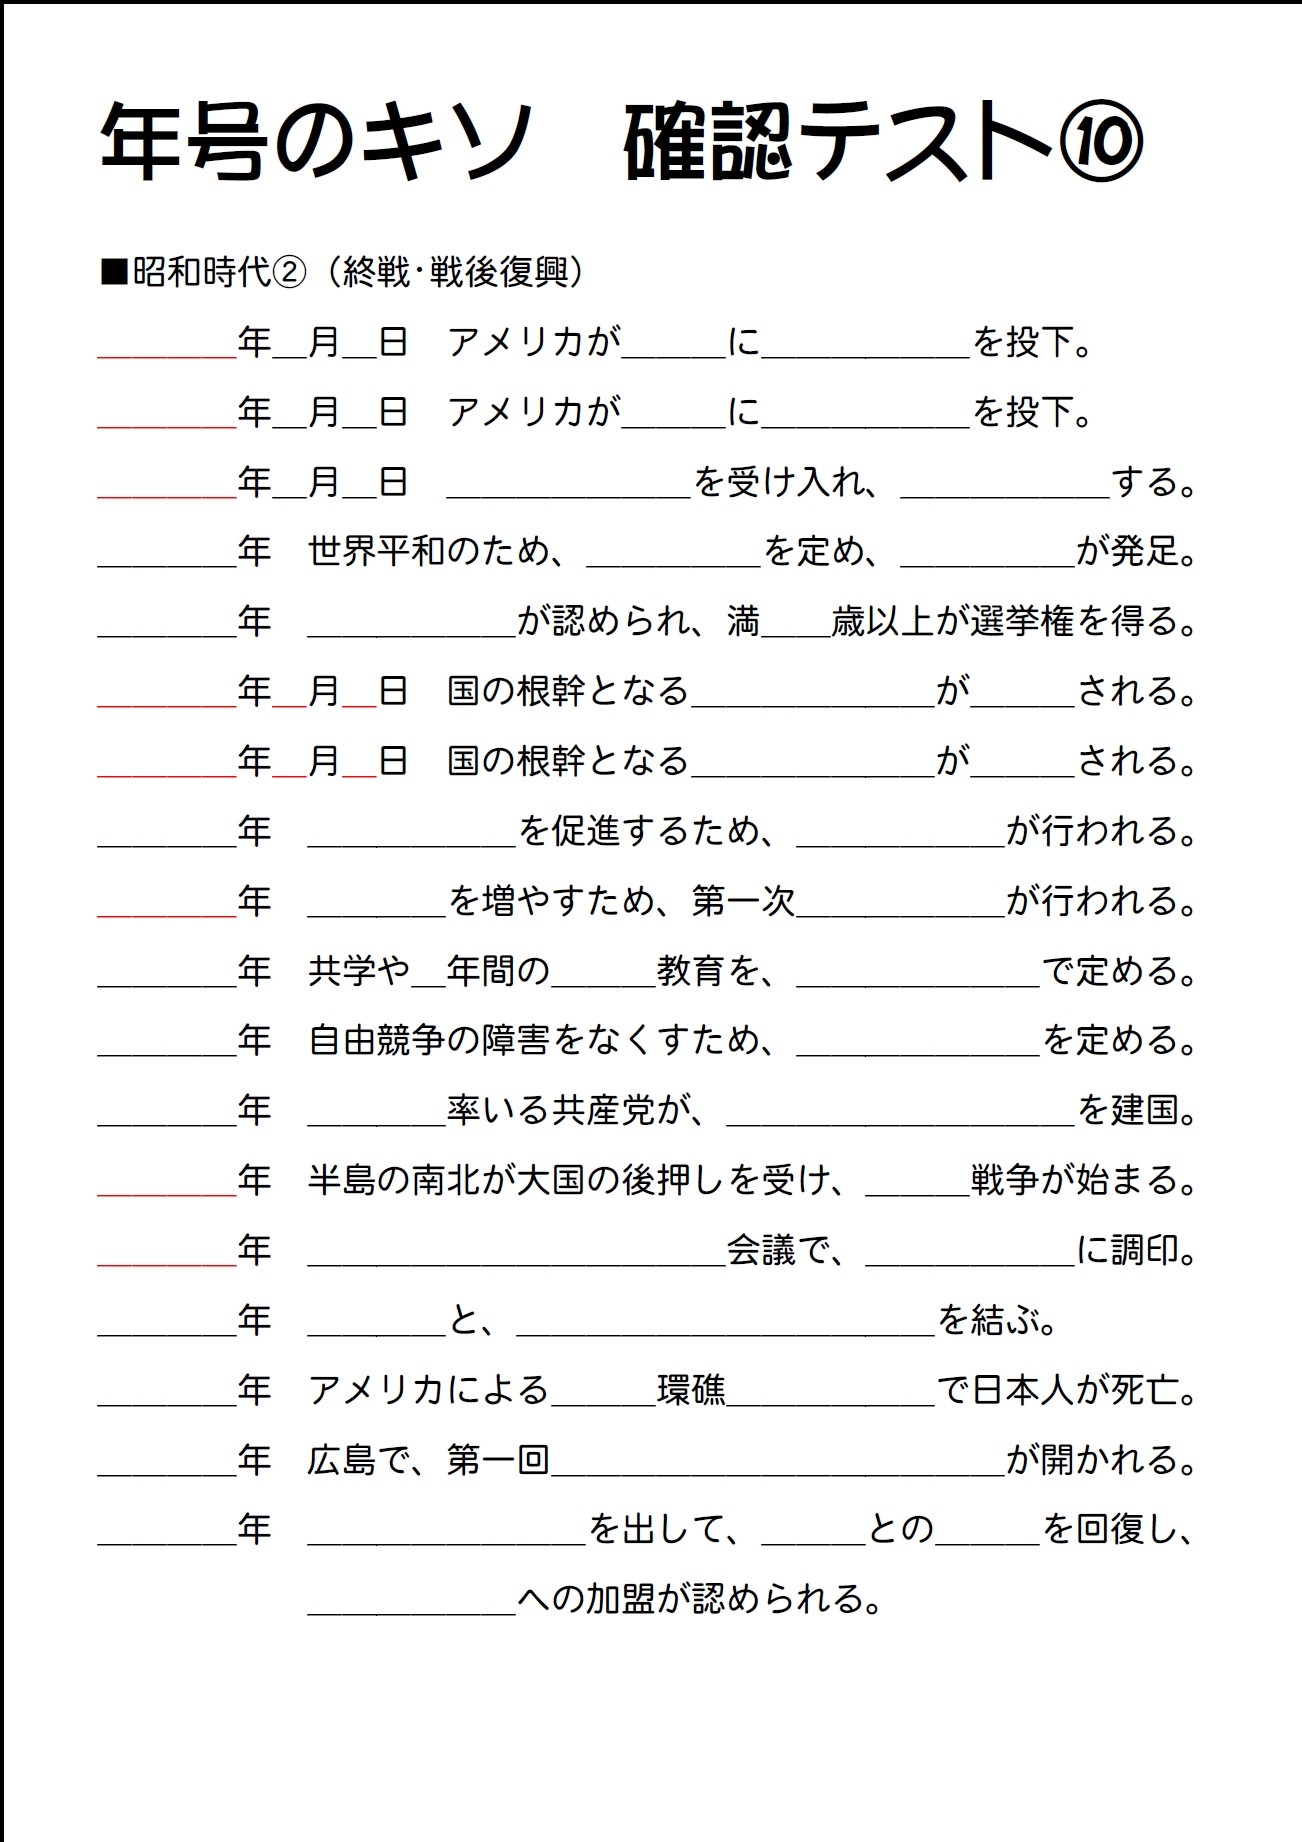 年号のキソ　確認テスト⑩
■昭和時代②（終戦･戦後復興）
＿＿＿＿年＿月＿日　アメリカが＿＿＿に＿＿＿＿＿＿を投下。
＿＿＿＿年＿月＿日　アメリカが＿＿＿に＿＿＿＿＿＿を投下。
＿＿＿＿年＿月＿日　＿＿＿＿＿＿＿を受け入れ、＿＿＿＿＿＿する。
＿＿＿＿年　世界平和のため、＿＿＿＿＿を定め、＿＿＿＿＿が発足。
＿＿＿＿年　＿＿＿＿＿＿が認められ、満＿＿歳以上が選挙権を得る。
＿＿＿＿年＿月＿日　国の根幹となる＿＿＿＿＿＿＿が＿＿＿される。
＿＿＿＿年＿月＿日　国の根幹となる＿＿＿＿＿＿＿が＿＿＿される。
＿＿＿＿年　＿＿＿＿＿＿を促進するため、＿＿＿＿＿＿が行われる。
＿＿＿＿年　＿＿＿＿を増やすため、第一次＿＿＿＿＿＿が行われる。
＿＿＿＿年　共学や＿年間の＿＿＿教育を、＿＿＿＿＿＿＿で定める。
＿＿＿＿年　自由競争の障害をなくすため、＿＿＿＿＿＿＿を定める。
＿＿＿＿年　＿＿＿＿率いる共産党が、＿＿＿＿＿＿＿＿＿＿を建国。
＿＿＿＿年　半島の南北が大国の後押しを受け、＿＿＿戦争が始まる。
＿＿＿＿年　＿＿＿＿＿＿＿＿＿＿＿＿会議で、＿＿＿＿＿＿に調印。
＿＿＿＿年　＿＿＿＿と、＿＿＿＿＿＿＿＿＿＿＿＿を結ぶ。
＿＿＿＿年　アメリカによる＿＿＿環礁＿＿＿＿＿＿で日本人が死亡。
＿＿＿＿年　広島で、第一回＿＿＿＿＿＿＿＿＿＿＿＿＿が開かれる。
＿＿＿＿年　＿＿＿＿＿＿＿＿を出して、＿＿＿との＿＿＿を回復し、
＿＿＿＿＿＿への加盟が認められる。